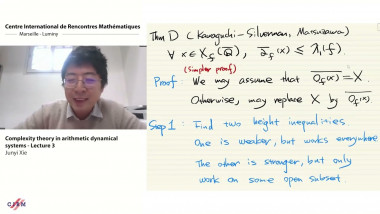 Centre International de Rencontres Mathématiques
Marseille - Luminy
Complexity theory in arithmetic dynamical
systems - Lecture 3
Junyi Xie
CIRM
Thm D (Kawaguchi-Silverman, Matsuzawa)
∀ x ∈ X_f(Q̄), ᾱ_f(x) ≤ λ₁(f).
(simpler proof)
Proof: We may assume that \overline{O_f(x)} = X.
Otherwise, may replace X by \overline{O_f(x)}
Step 1: Find two height inequalities.
One is weaker, but works everywhere
The other is stronger, but only
work on some open subset.